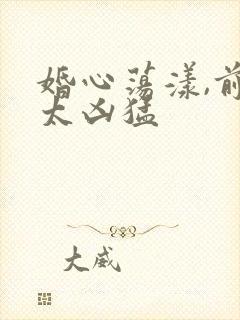 婚心荡漾,前
太凶猛
大威